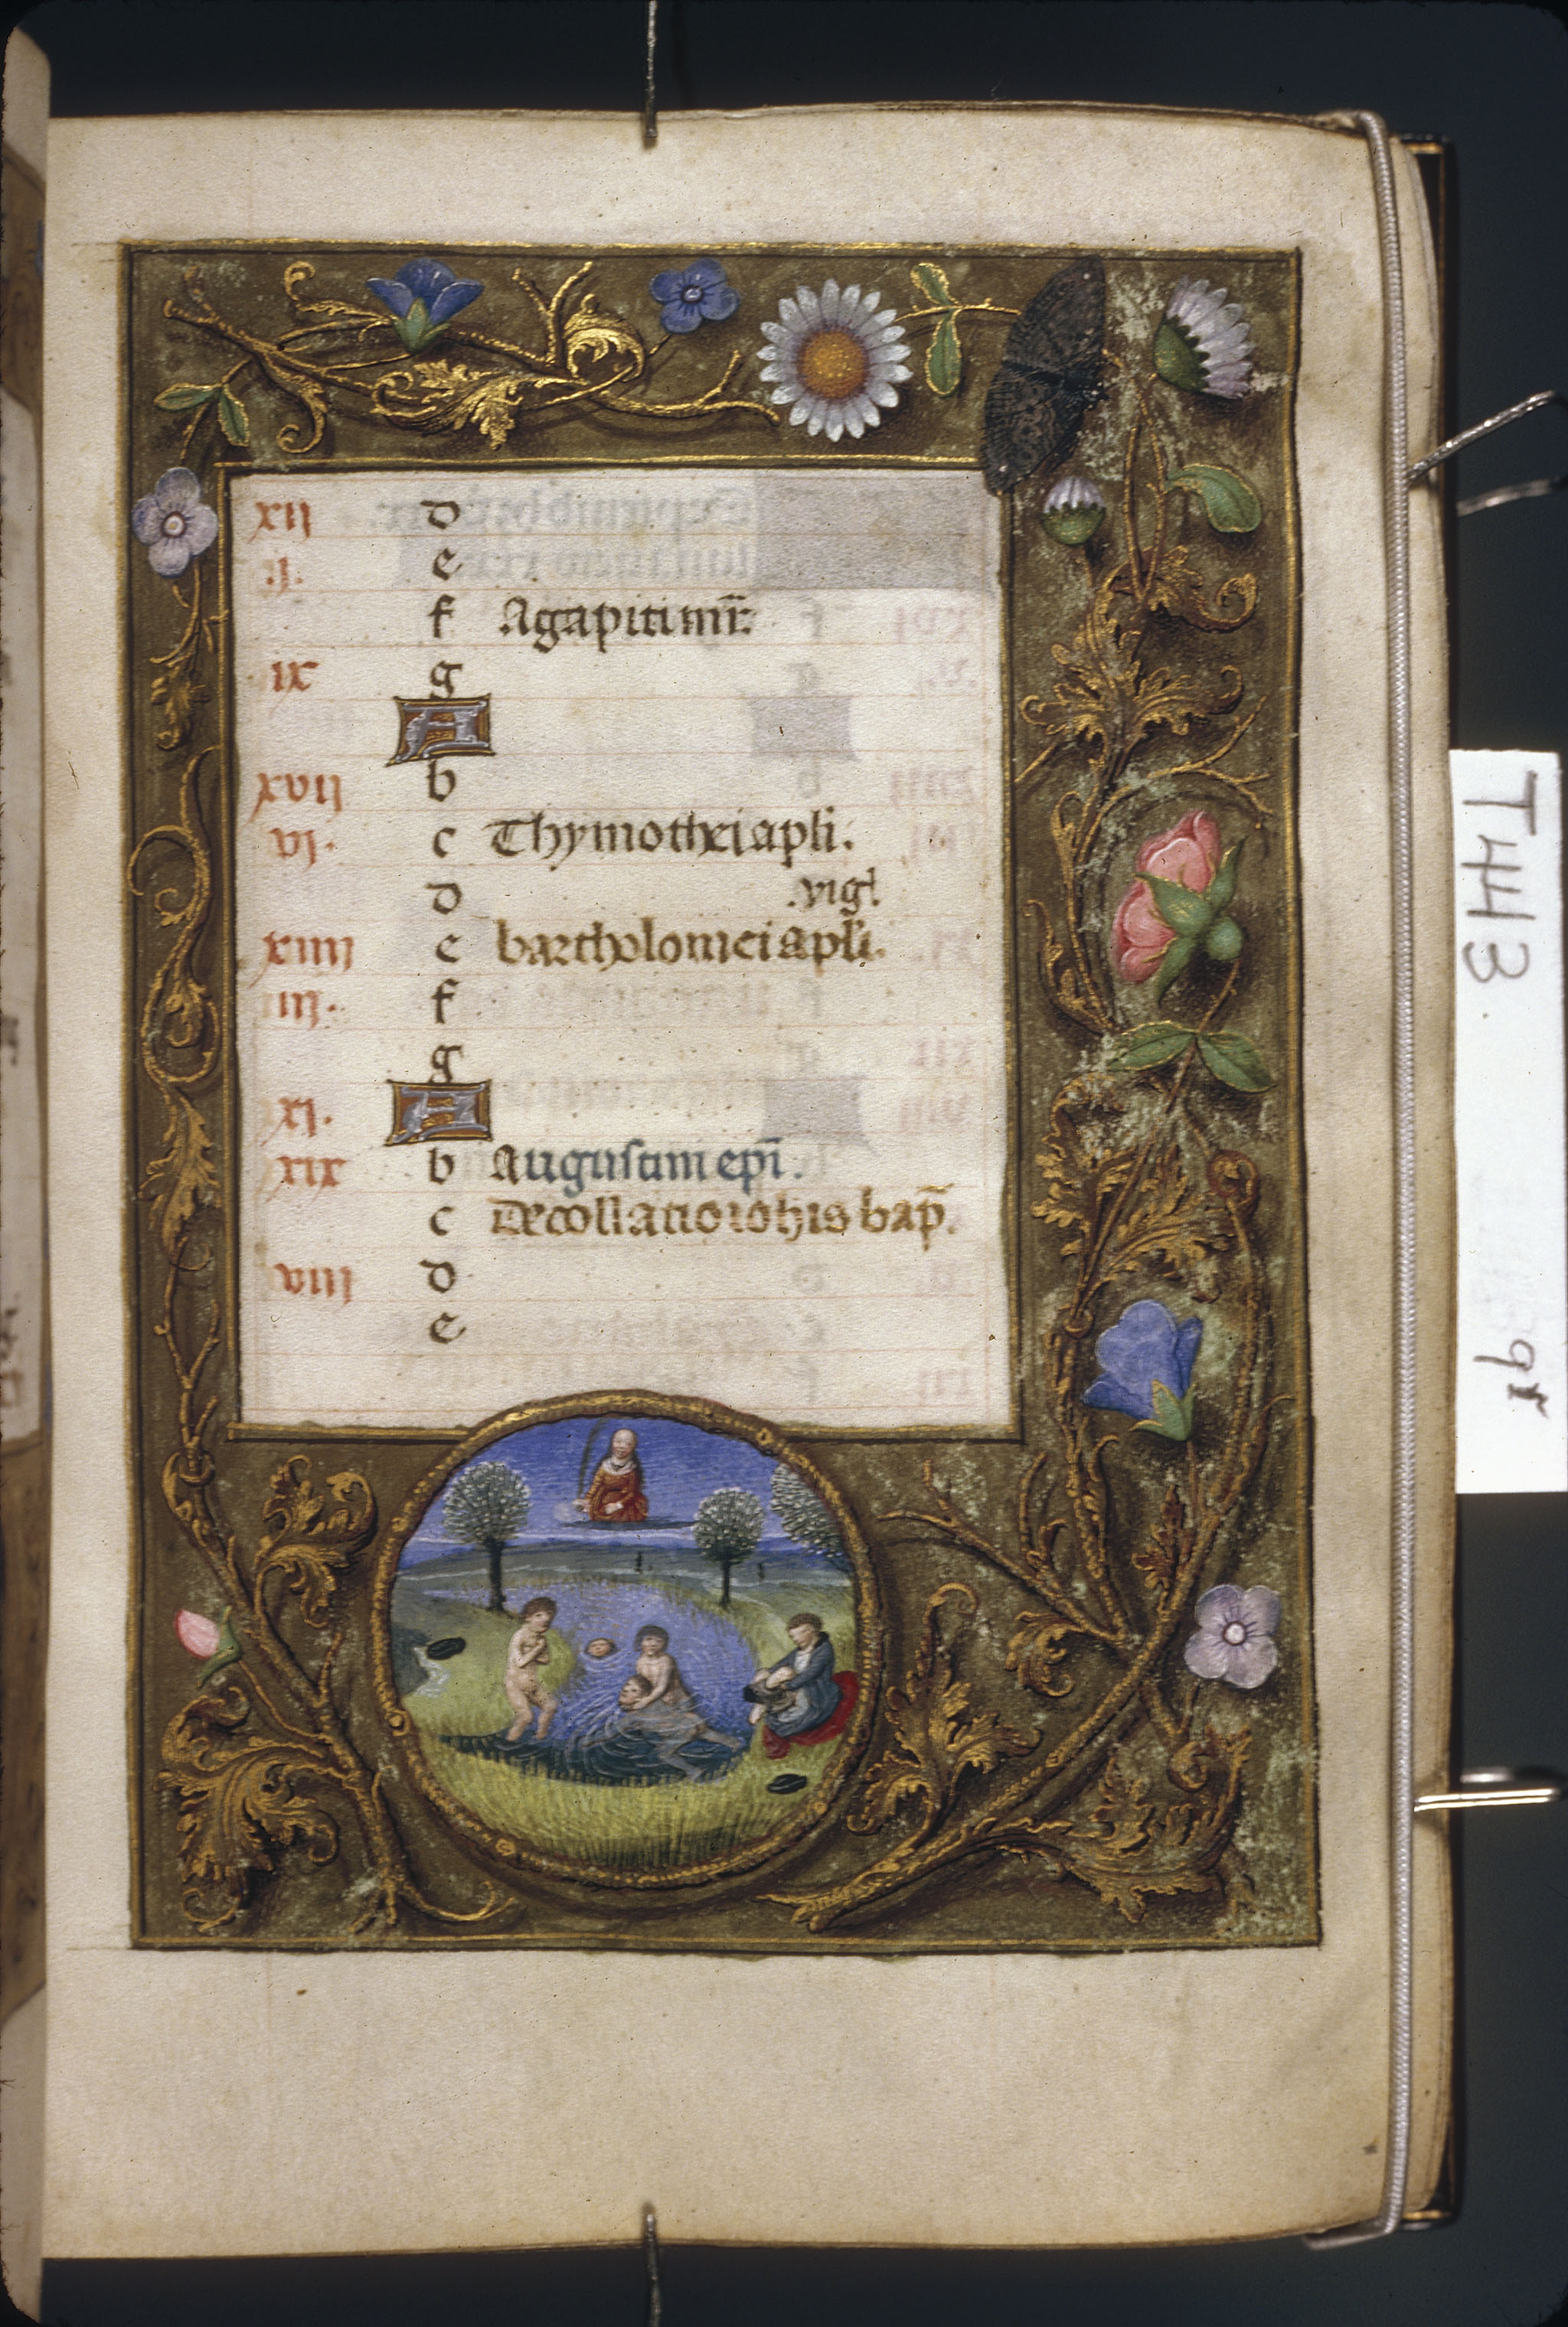 xij d
.j. e
f Agapiti mr̄.
ix g
A
xvij b
vj. c Thymothei apl̄i.
d .vigl̄.
xiiij e bartholomei apl̄i.
iij. f
g
xj. A
xix b Augustini ep̄i.
c Decollatio ioh̄is bap̄.
viij d
e
T443
9r